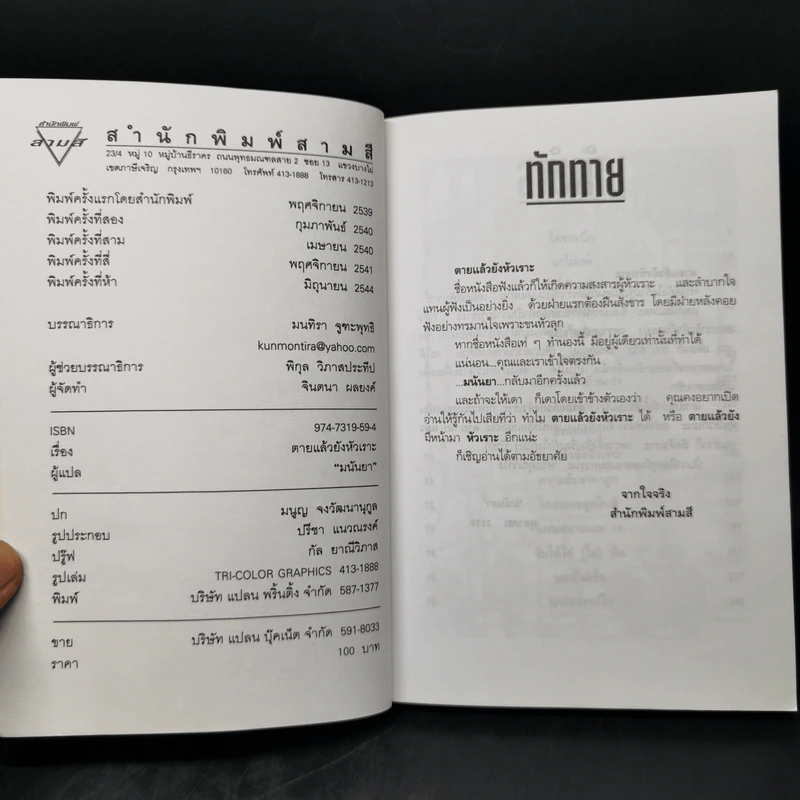 สำนักพิมพ์
สามสี
สำนักพิมพ์สามสี
23/4 หมู่ 10 หมู่บ้านธีราคร ถนนพุทธมณฑลสาย 2 ซอย 13 แขวงบางไผ่
เขตภาษีเจริญ กรุงเทพฯ 10160 โทรศัพท์ 413-1888 โทรสาร 413-1213
พิมพ์ครั้งแรกโดยสำนักพิมพ์ พฤศจิกายน 2539
พิมพ์ครั้งที่สอง กุมภาพันธ์ 2540
พิมพ์ครั้งที่สาม เมษายน 2540
พิมพ์ครั้งที่สี่ พฤศจิกายน 2541
พิมพ์ครั้งที่ห้า มิถุนายน 2544
บรรณาธิการ มนทิรา จูฑะพุทธิ
kunmontira@yahoo.com
ผู้ช่วยบรรณาธิการ พิกุล วิภาสประทีป
ผู้จัดทำ จินตนา ผลยงค์
ISBN 974-7319-59-4
เรื่อง ตายแล้วยังหัวเราะ
ผู้แปล "มนันยา"
ปก มนูญ จงวัฒนานุกูล
รูปประกอบ ปรีชา แนวณรงค์
ปรู๊ฟ กัล ยาณีวิภาส
รูปเล่ม TRI-COLOR GRAPHICS 413-1888
พิมพ์ บริษัท แปลน พริ้นติ้ง จำกัด 587-1377
ขาย บริษัท แปลน บุ๊คเน็ต จำกัด 591-8033
ราคา 100 บาท
ทักทาย
ตายแล้วยังหัวเราะ
ชื่อหนังสือฟังแล้วก็ให้เกิดความสงสารผู้หัวเราะ และลำบากใจ
แทนผู้ฟังเป็นอย่างยิ่ง ด้วยฝ่ายแรกต้องฝืนสังขาร โดยมีฝ่ายหลังคอย
ฟังอย่างทรมานใจเพราะขนหัวลุก
หากชื่อหนังสือเท่ ๆ ทำนองนี้ มีอยู่ผู้เดียวเท่านั้นที่ทำได้
แน่นอน...คุณและเราเข้าใจตรงกัน
...มนันยา...กลับมาอีกครั้งแล้ว
และถ้าจะให้เดา ก็เดาโดยเข้าข้างตัวเองว่า คุณคงอยากเปิด
อ่านให้รู้กันไปเสียทีว่า ทำไม ตายแล้วยังหัวเราะ ได้ หรือ ตายแล้วยัง
มีหน้ามา หัวเราะ อีกแน่ะ
ก็เชิญอ่านได้ตามอัธยาศัย
จากใจจริง
สำนักพิมพ์สามสี